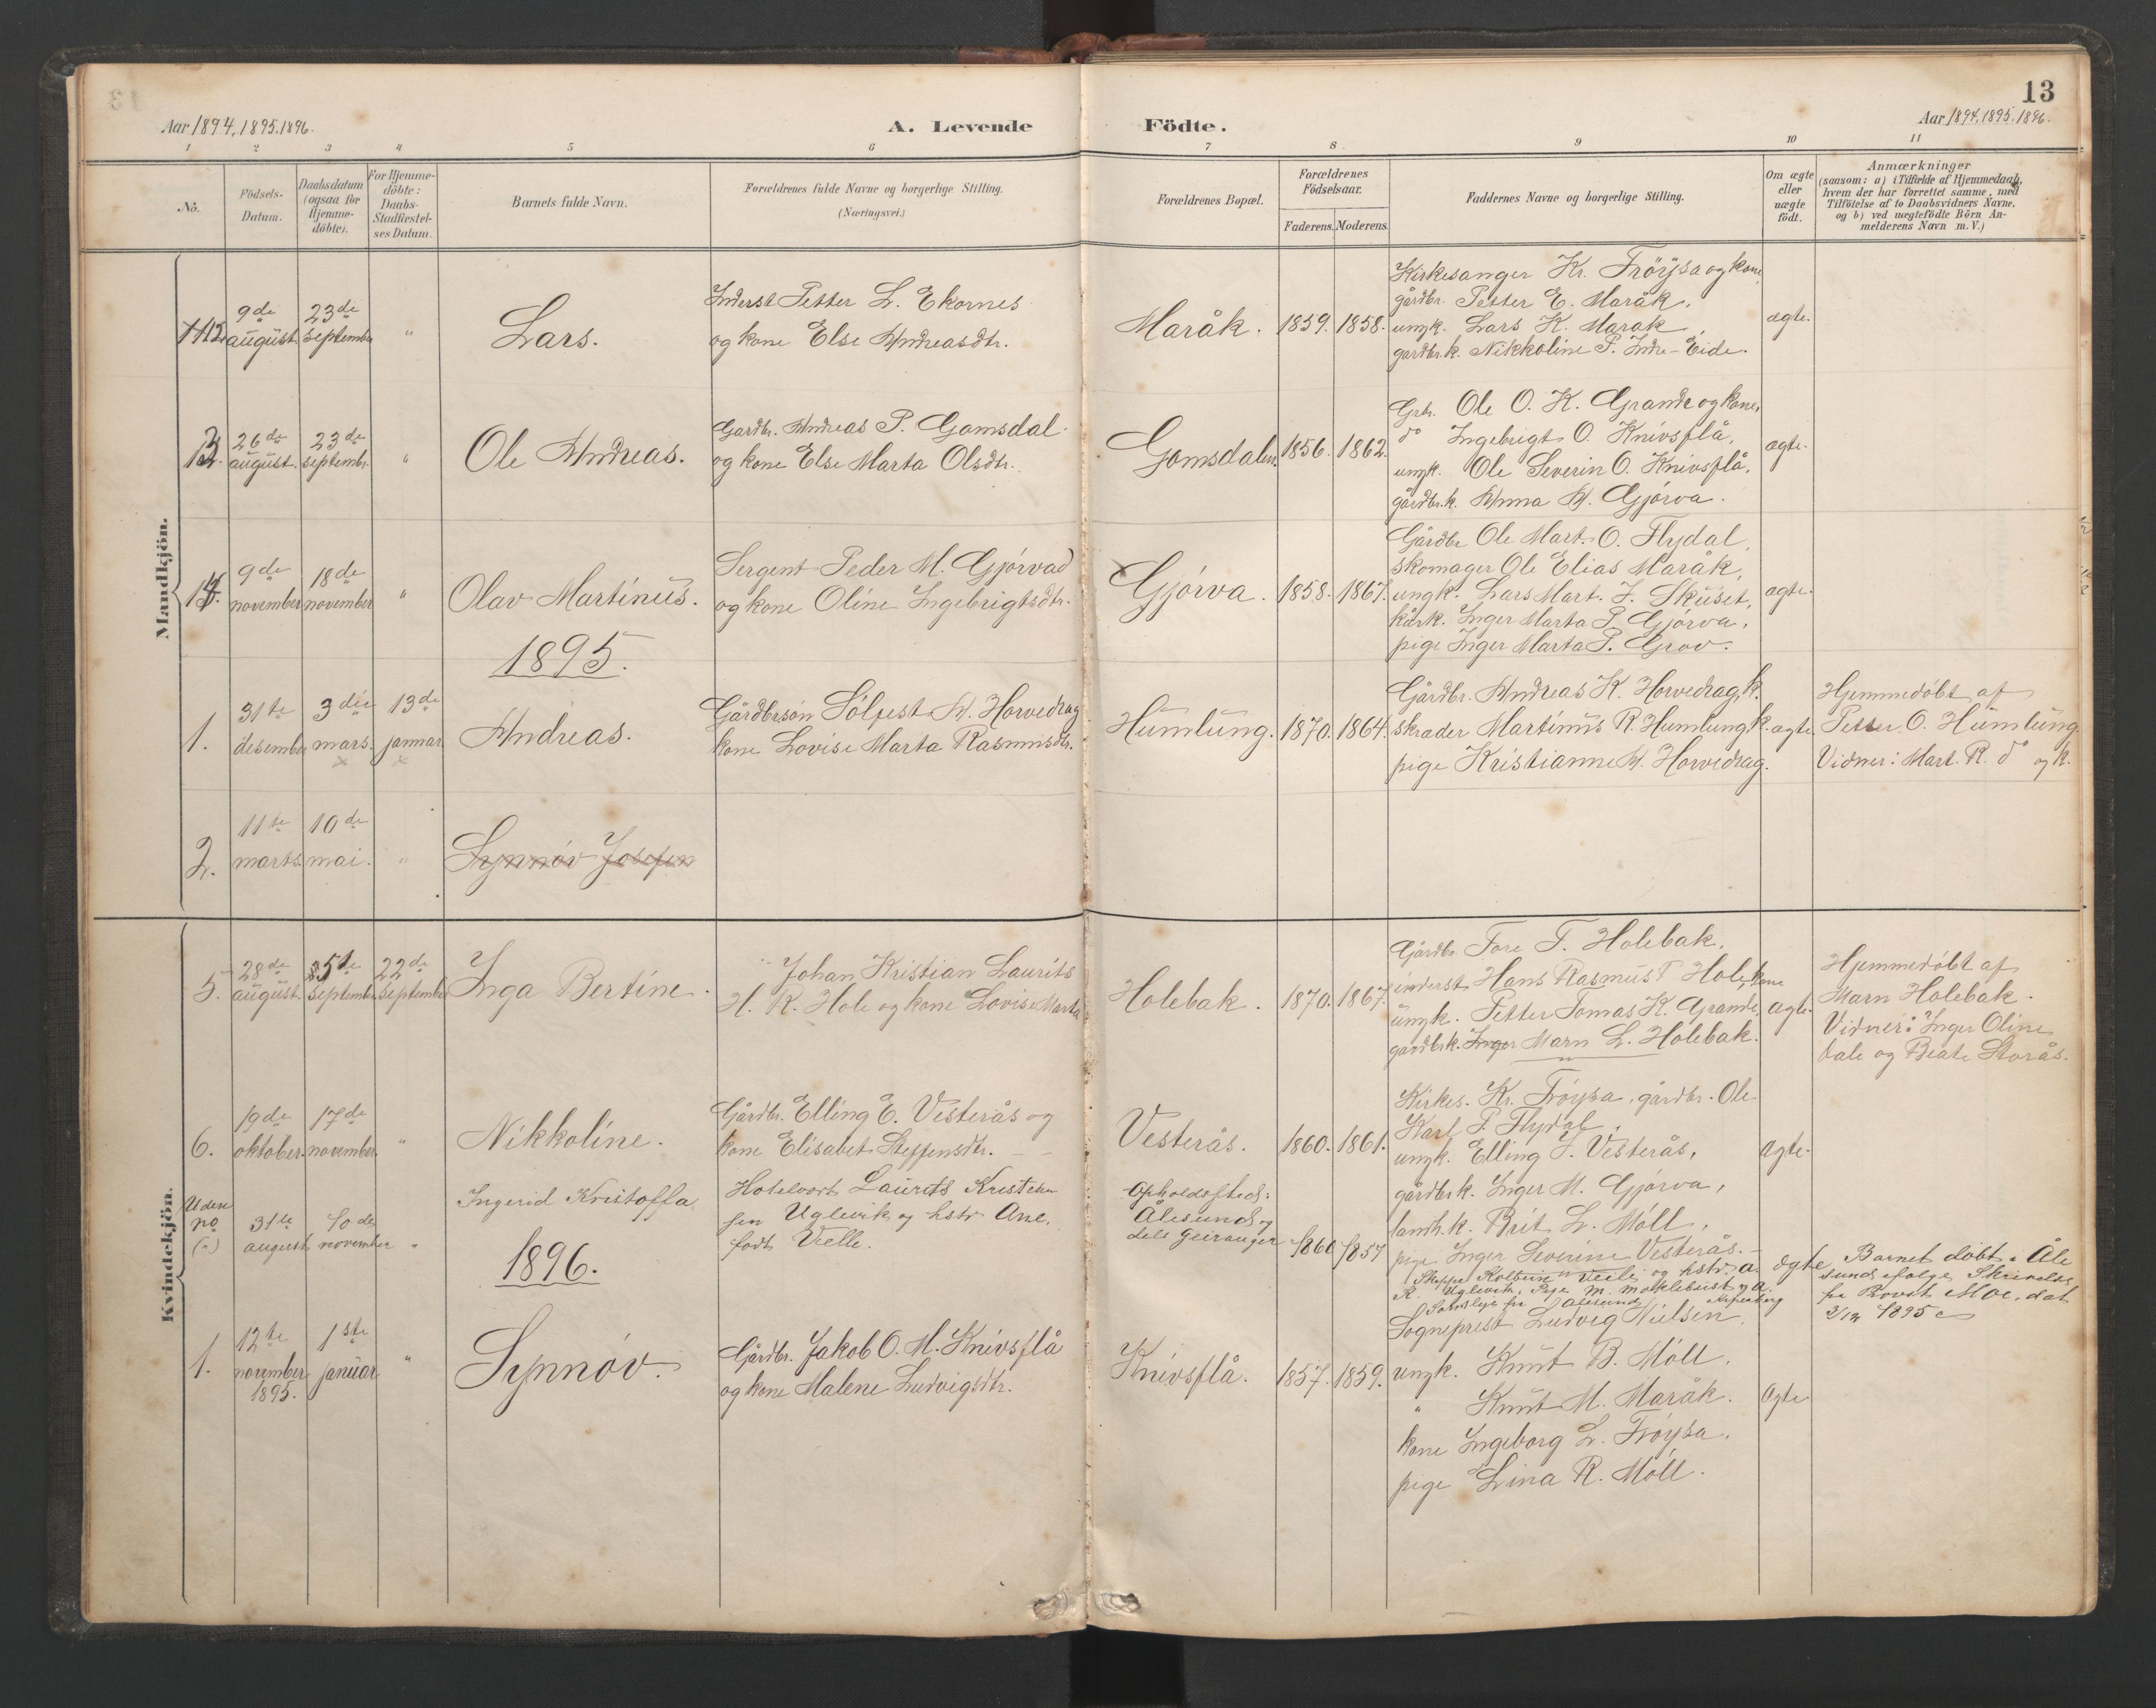 13
Aar 1894, 1895. 1896.
A. Levende Födte.
Aar 1894, 1895. 1896.
1 2 3 4 5 6 7 8 9 10 11
No.
Födsels-
Datum.
Daabsdatum
(ogsaa for
Hjemme-
döbte).
For Hjemme-
döbte:
Daabs-
Stadfæstel-
ses Datum.
Barnets fulde Navn.
Forældrenes fulde Navne og borgerlige Stilling.
(Næringsvei.)
Forældrenes Bopæl.
Forældrenes
Födselsaar.
Faderens. Moderens.
Faddernes Navne og borgerlige Stilling.
Om ægte
eller
uægte
födt.
Anmærkninger
(saasom: a) i Tilfælde af Hjemmedaab,
hvem der har forrettet samme, med
Tilföielse af to Daabsvidners Navne,
og b) ved uægtefödte Börn An-
melderens Navn m. V.)
Mandkjön.
12.
9de
august
23de
september
"
Lars.
Inderst Petter L. Ekornes
og kone Else Andreasdtr.
Maråk.
1859. 1858.
Kirkesanger Kr. Fröysa og kone,
gårdbr. Petter E. Maråk,
ungk. Lars K. Maråk,
gardbr.k. Nikkoline P. Indre-Eide.
ægte.
13.
26de
august.
23de
septembr.
"
Ole Andreas.
Gardbr. Andreas P. Gomsdal
og kone Else Marta Olsdtr.
Gomsdalen.
1856. 1862.
Grbr. Ole O. K. Grande og kone,
do Ingebrigt O. Knivsflå,
ungk. Ole Severin O. Knivsflå,
gårdbr.k. Anna A. Gjörva.
ægte.
14.
9de
november
18de
november
"
Olav Martinus.
Sergent Peder M. Gjörvad
og kone Oline Ingebrigtsdtr.
Gjörva.
1858. 1867.
Gårdbr Ole Mart. O. Flydal,
skomager Ole Elias Maråk,
ungk. Lars Mart. J. Skuset,
kårk. Inger Marta P. Gjörva,
pige Inger Marta P. Grov.
ægte.
1895.
1.
31te
desember
3die
mars.
13de
januar
Andreas.
Gårdbrsön Sölfest A. Horvedrag
kone Lovise Marta Rasmusdtr.
Humlung.
1870. 1864.
Gårdbr. Andreas K. Horvedrag, k.
skræder Martinus R. Humlung, k.
pige Kristianne A. Horvedrag.
ægte
Hjemmedöbt af
Petter O. Humlung.
Vidner: Mart. R. do og k.
2.
11te
marts.
10de
mai.
"
Synnöv Josefen
Kvindekjön.
5.
28de
august.
5te
september
22de
september
Inga Bertine.
Johan Kristian Laurits
H. R. Hole og kone Lovise Marta
Holebak.
1870. 1867.
Gårdbr. Tore T. Holebak,
inderst Hans Rasmus T Hole, kone
ungk. Petter Tomas K. Grande,
gardbr.k. Inger Marn L. Holebak.
ægte.
Hjemmedöbt af
Marn Holebak.
Vidner: Inger Oline
Dale og Beate Storås.
6.
19de
oktober.
17de
november.
"
Nikkoline.
Gårdbr. Elling E. Vesterås og
kone Elisabet Steffensdtr.
Vesterås.
1860. 1861.
Kirkes. Kr. Fröysa, gårdbr. Ole
Karl P. Flydal,
ungk. Elling J. Vesterås,
gårdbr.k. Inger M. Gjörva,
landh.k. Brit L. Möll,
pige Inger Severine Vesterås.
ægte.
Uden
no
31te
august
10de
november
"
Ingerid Kristoffa
Hotelvert Laurits Kristian
sen Uglevik og hstr Ane.
födt Vielle.
Opholdssted:
Ålesund og
dels Geiranger
1860 1857
Kolbein Veile og hstr. a.
K. Uglevik, Pige M. Moklebust og a.
Ålesund
ægte
Barnet döbt i Åle
sund ifölge Skrivelse
fra Provst Moe, dat
2/12 1895
1896.
1.
12te
november
1895.
1ste
januar
"
Synnöv.
Gårdbr. Jakob O. M. Knivsflå
og kone Malene Ludvigsdtr.
Knivsflå.
1857. 1859.
Sogneprest Ludvig Nielsen,
ungk. Knut B. Möll,
" Knut M. Maråk.
kone Ingeborg L. Fröysa,
pige Lina R. Möll.
ægte